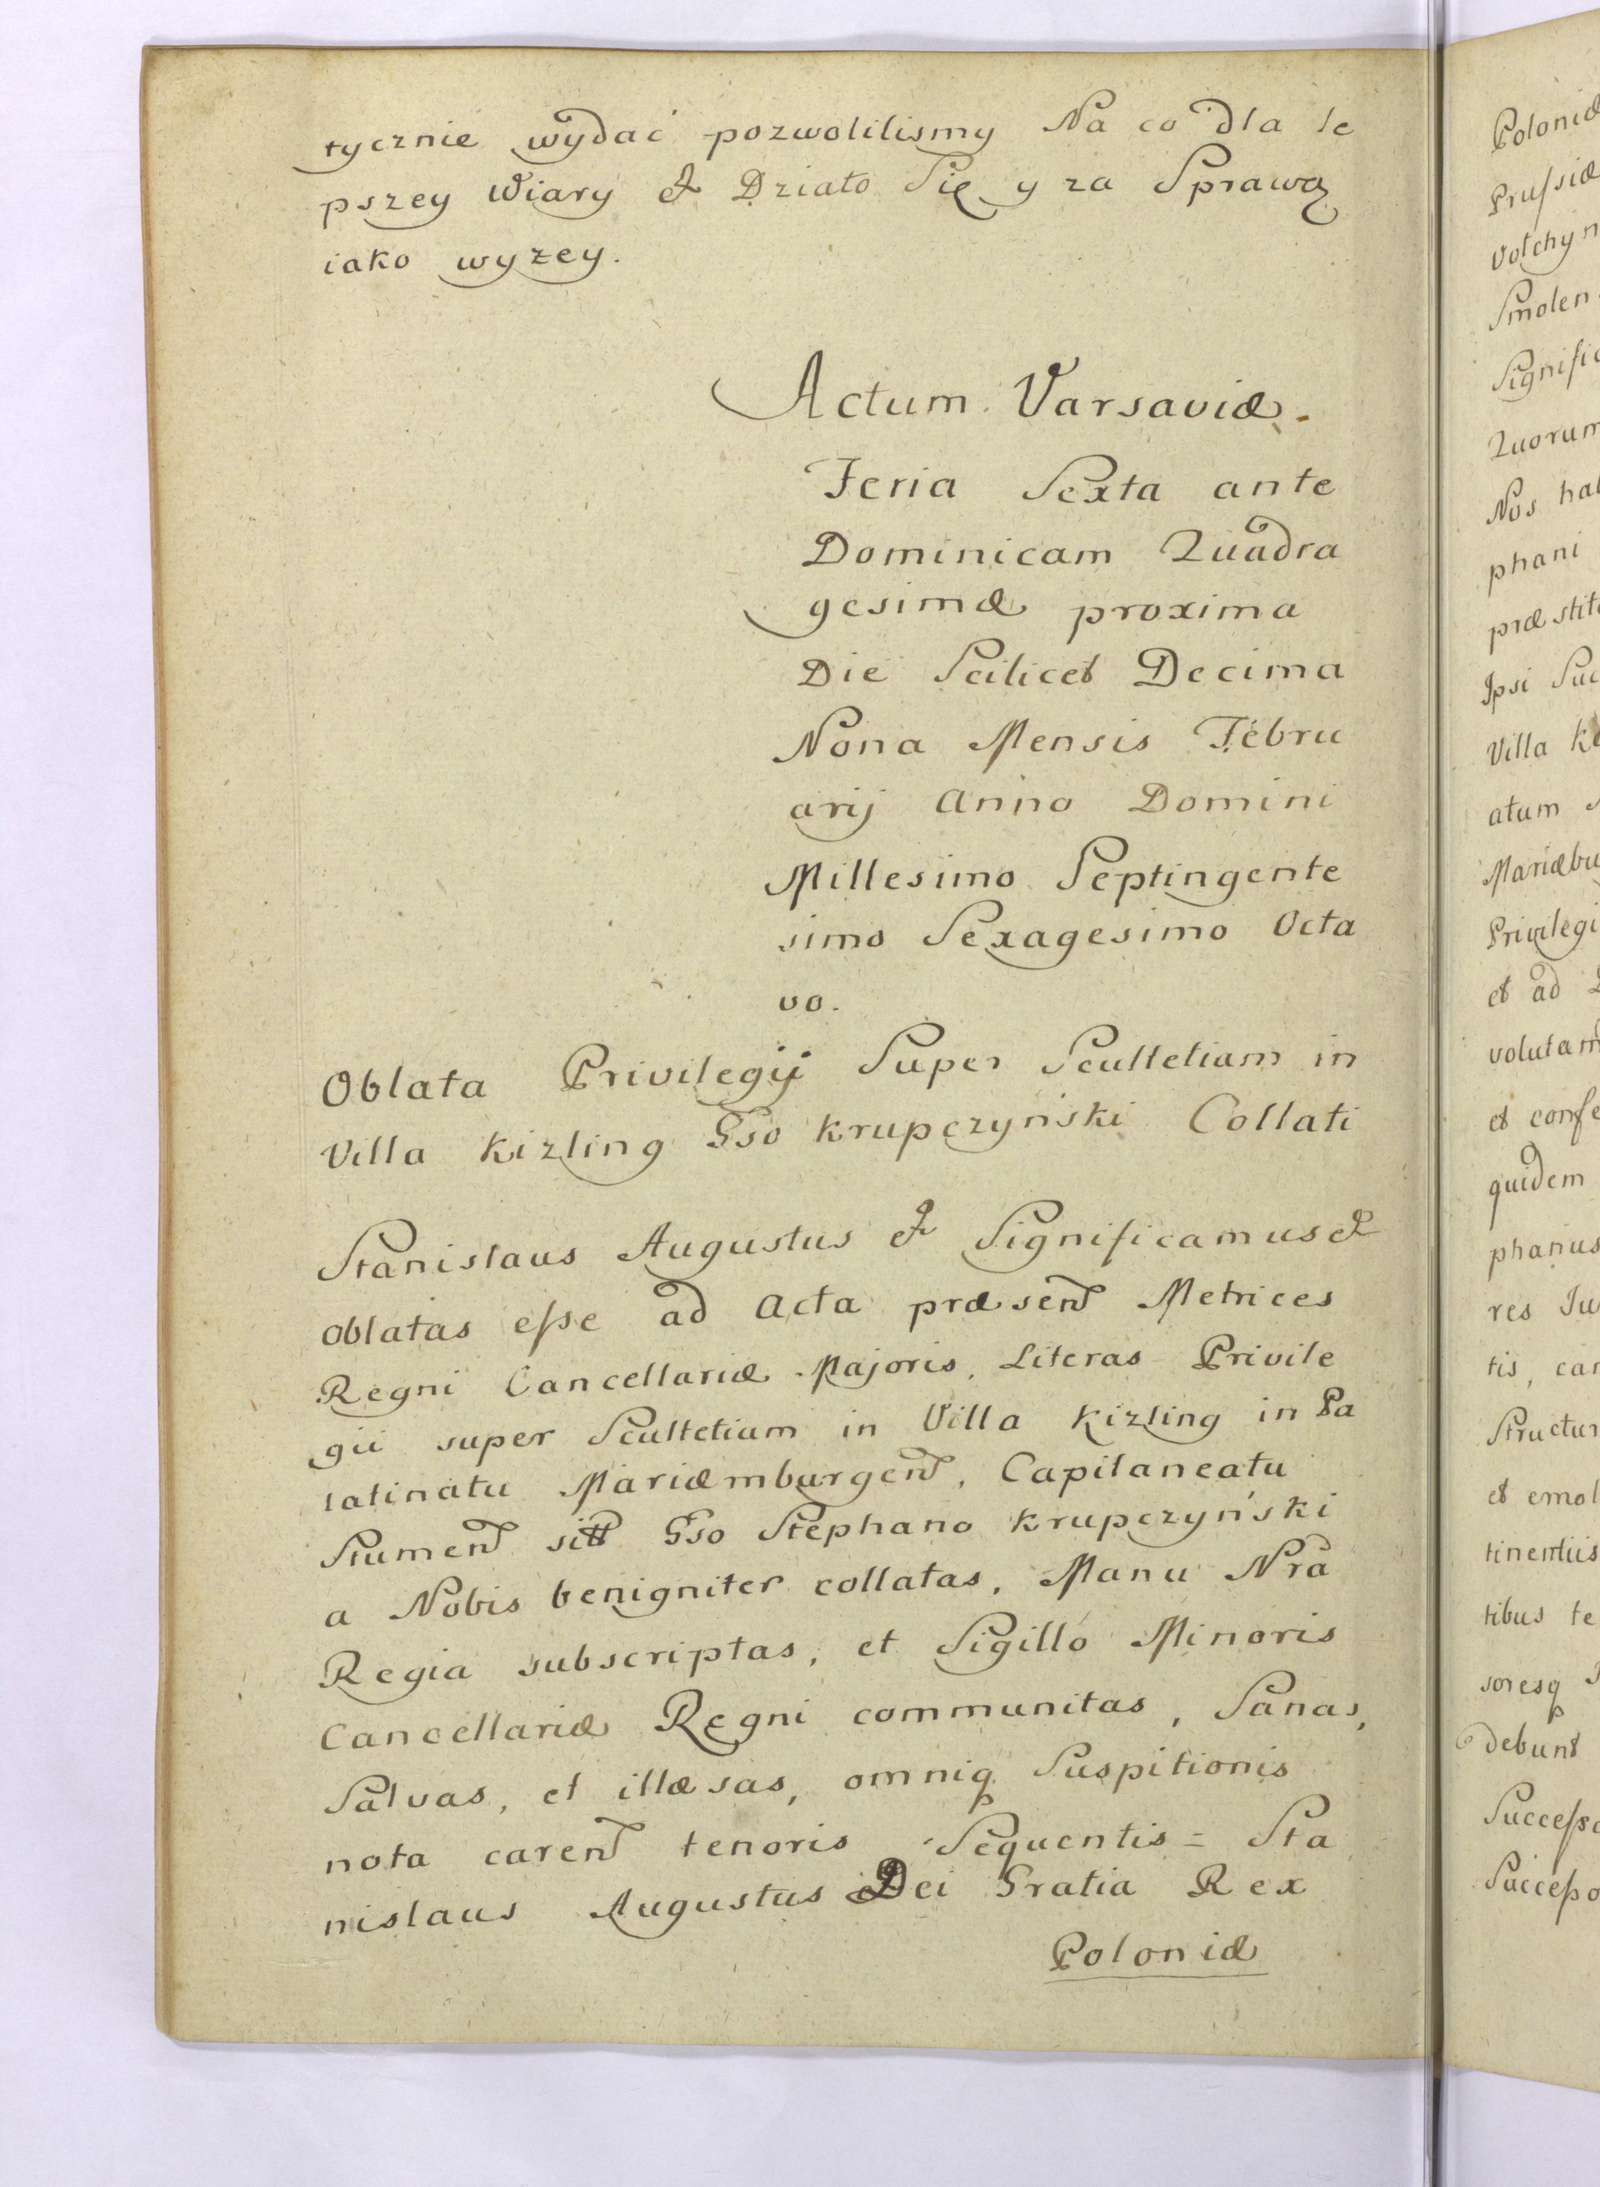 tycznie wydać pozwolilismy Na co dla le
pszey Wiary & Działo Się y za Sprawą
iako wyzey.
Actum Varsaviæ.
Feria Sexta ante
Dominicam Quadra
gesimæ proxima
Die Scilicet Decima
Nona Mensis Febru
arij Anno Domini
Millesimo Septingente
simo Sexagesimo Octa
vo.
Oblata Privilegij Super Scultetiam in
Villa Kizling Gso Krupczyński Collati
Stanislaus Augustus & Significamus &
Oblatas esse ad Acta præsen Metrices
Regni Cancellariæ Majoris, Literas Privile
gii super Scultetiam in Villa Kizling in Pa
latinatu Mariæmburgen, Capitaneatu
Stumen sitt Gso Stephano Krupczyński
a Nobis benigniter collatas, Manu Nra
Regia subscriptas, et Sigillo Minoris
Cancellariæ Regni communitas, Sanas,
Salvas, et illæsas, omniq Suspitionis
nota caren tenoris Sequentis = Sta
nislaus Augustus Dei Gratia Rex
Poloniæ
Poloniæ
Prussiæ
Volhyn
Smolen
Signific
Quorum
Nos hab
phani
præstit
Ipsi Suc
Villa K
atum
Mariæbu
Privilegi
et ad
volutam
et confe
quidem
phanus
res Iu
tis, can
Structur
et emol
tinentiis
tibus te
soresq
debunt
Successo
Successo